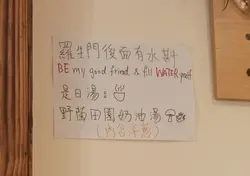 羅生門後面有水斟
BE my good friend & fill WATER
是日湯：
野菌田園奶油湯
(內含洋蔥)